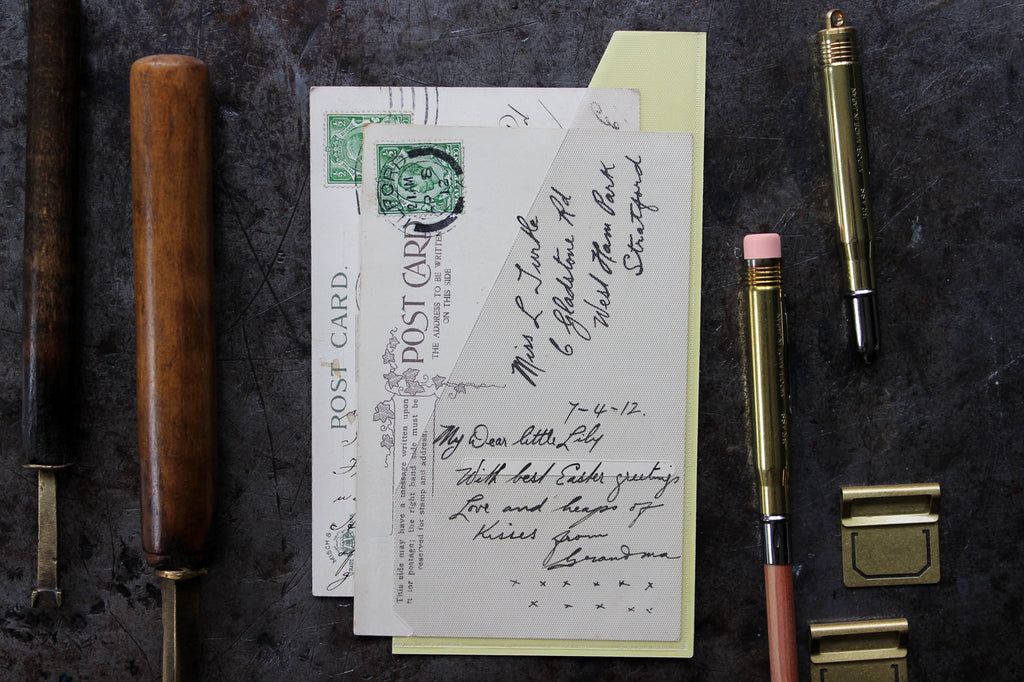 POST CARD.
POST CARD
THE ADDRESS TO BE WRITTEN
ON THIS SIDE
Miss L Turtle
6 Gladstone Rd
West Ham Park
Stratford
7-4-12.
My Dear little Lily
With best Easter greetings
Love and heaps of
Kisses from
Grandma
x x x x x x
x x x x x
This side may have a message written upon
it for postage; the right hand side must be
reserved for stamp and address.
Rd